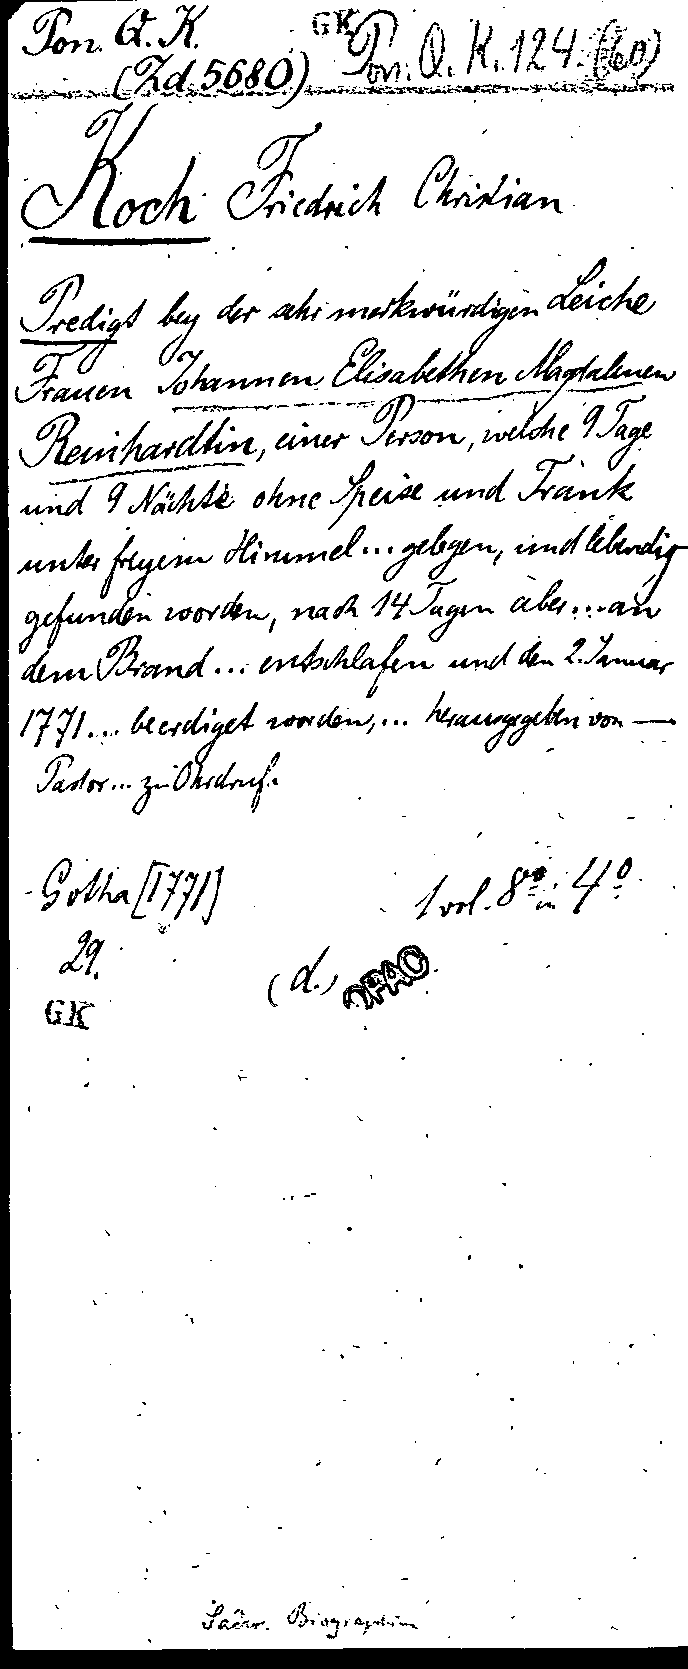 Pon. Q. K.
GK
(Zd 5680)
Pon. Q. K. 124. (60)
Koch Friedrich Christian
Predigt bey der sehr merkwürdigen Leiche
Frauen Johannen Elisabethen Magdalenen
Reinhardtin, einer Person, welche 9 Tage
und 9 Nächte ohne Speise und Trank
unter freyem Himmel... gelegen, und lebendig
gefunden worden, nach 14 Tagen aber... an
dem Brand... entschlafen und den 2. Januar
1771... beerdiget worden,... herausgegeben von —
Pastor... zu Ohrdruf.
Gotha [1771]
1 vol. 8º in 4º
29.
(d.) OPAC
GK
Biographien